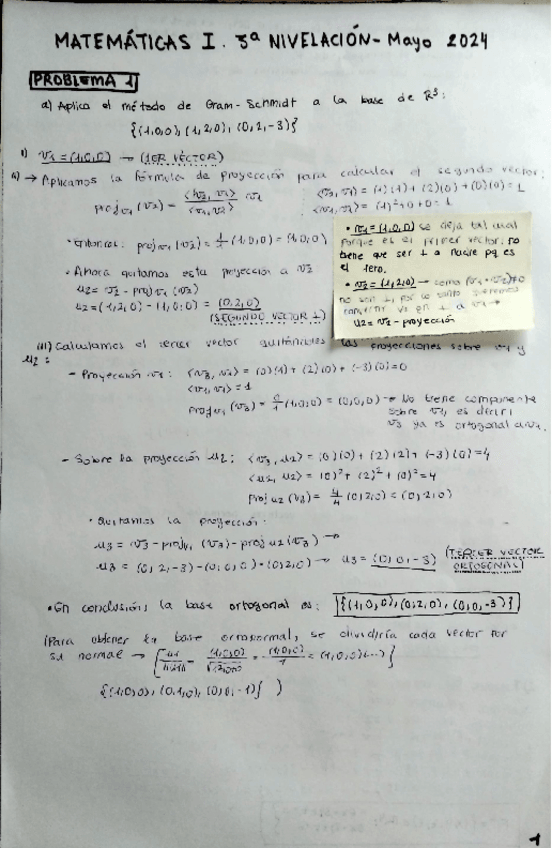 MATEMÁTICAS I. 3ª NIVELACIÓN - Mayo 2024
PROBLEMA 1
a) Aplica el método de Gram-Schmidt a la base de R³:
{(1,0,0), (1,2,0), (0,2,-3)}
i) v1 = (1,0,0) → (1ER VECTOR)
ii) → Aplicamos la fórmula de proyección para calcular el segundo vector:
proj v1 (v2) = <v2, v1> / <v1, v2> v1
<v2, v1> = (1)(1) + (2)(0) + (0)(0) = 1
<v1, v2> = (1)² + 0 + 0 = 1
• Entonces: proj v1 (v2) = 1/1 (1,0,0) = (1,0,0)
• Ahora quitamos esta proyección a v2
u2 = v2 - proj v1 (v2)
u2 = (1,2,0) - (1,0,0) = (0,2,0)
(SEGUNDO VECTOR ⊥)
• v1 = (1,0,0) se deja tal cual
porque es el primer vector; no
tiene que ser ⊥ a nadie pq es
el 1ero.
• v2 = (1,2,0) → como (v1 · v2) ≠ 0
no son ⊥, por lo tanto queremos
convertir v2 en ⊥ a v1 →
u2 = v2 - proyección
iii) Calculamos el tercer vector quitándoles las proyecciones sobre v1 y
u2:
- Proyección v1: <v3, v1> = (0)(1) + (2)(0) + (-3)(0) = 0
<v1, v1> = 1
proj v1 (v3) = 0/1 (1,0,0) = (0,0,0) → No tiene componente
sobre v1, es decir,
v3 ya es ortogonal a v1.
- Sobre la proyección u2: <v3, u2> = (0)(0) + (2)(2) + (-3)(0) = 4
<u2, u2> = (0)² + (2)² + (0)² = 4
proj u2 (v3) = 4/4 (0,2,0) = (0,2,0)
• Quitamos la proyección:
u3 = v3 - proj v1 (v3) - proj u2 (v3) →
u3 = (0,2,-3) - (0,0,0) - (0,2,0) → u3 = (0,0,-3) (TERCER VECTOR
ORTOGONAL)
• En conclusión, la base ortogonal es: {(1,0,0), (0,2,0), (0,0,-3)}
(Para obtener la base ortonormal, se dividiría cada vector por
su normal → = (1,0,0)/1 = (1,0,0) (...) }
{(1,0,0), (0,1,0), (0,0,-1)} )
1